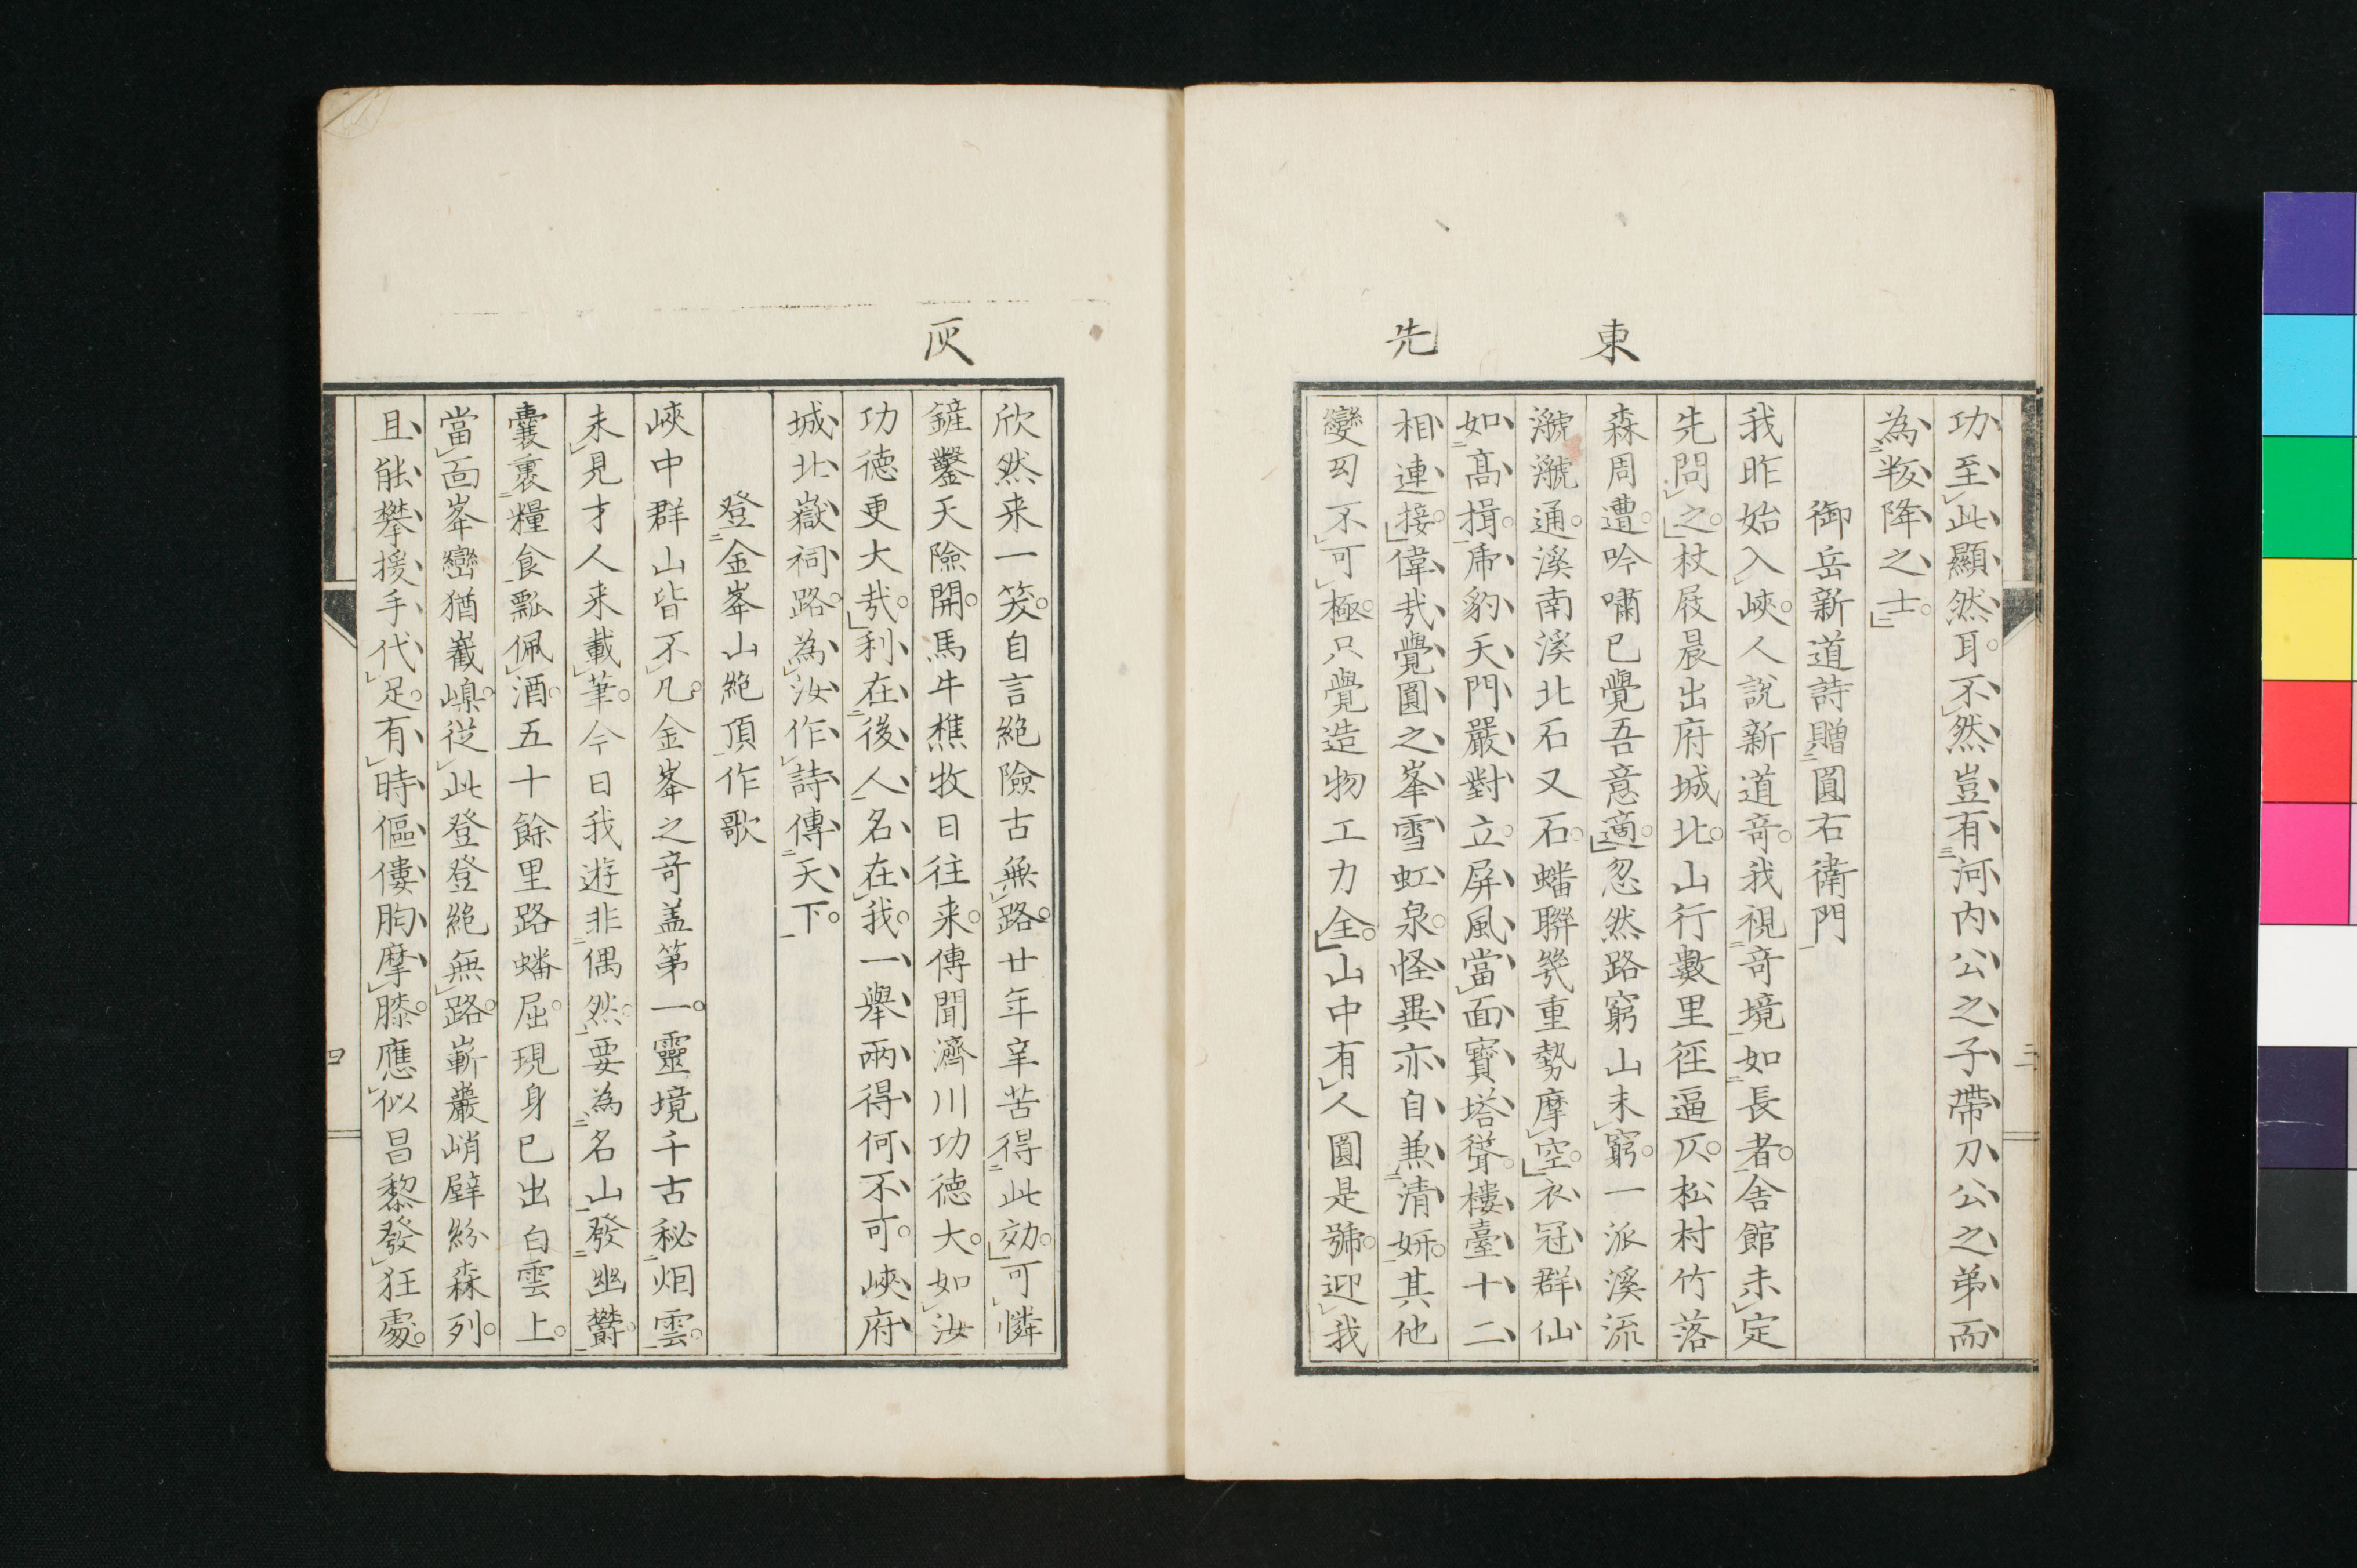 東
先
功至此顯然耳不然豈有河内公之子帶刀公之弟而
為叛降之士
御岳新道詩贈圓右衛門
我昨始入峽人說新道竒我視竒境如長者舎館未定
先問之杖屐晨出府城北山行數里徑逼仄松村竹落
森周遭吟嘯已覺吾意適忽然路窮山未窮一派溪流
㶁㶁通溪南溪北石又石蟠聯幾重勢摩空衣冠群仙
如髙揖乕豹天門嚴對立屏風當面寳塔聳樓臺十二
相連接偉㢤覺圓之峯雪虹泉怪異亦自兼清妍其他
變幻不可極只覺造物工力全山中有人圓是號迎我
灰
欣然来一笑自言絶險古無路廿年辛苦得此効可憐
鏟鑿天險開馬牛樵牧日往来傳聞濟川功徳大如汝
功徳更大㢤利在後人名在我一舉兩得何不可峽府
城北嶽祠路為汝作詩傳天下
登金峯山絶頂作歌
峽中群山皆不凡金峯之竒盖第一靈境千古秘烟雲
未見才人来載筆今日我遊非偶然要為名山發幽欝
囊裹糧食瓢佩酒五十餘里路蟠屈現身已出白雲上
當面峯巒猶嶻嵲従此登登絶無路嶄巖峭壁紛森列
且能攀援手代足有時傴僂胸摩膝應似昌黎發狂處
三
四